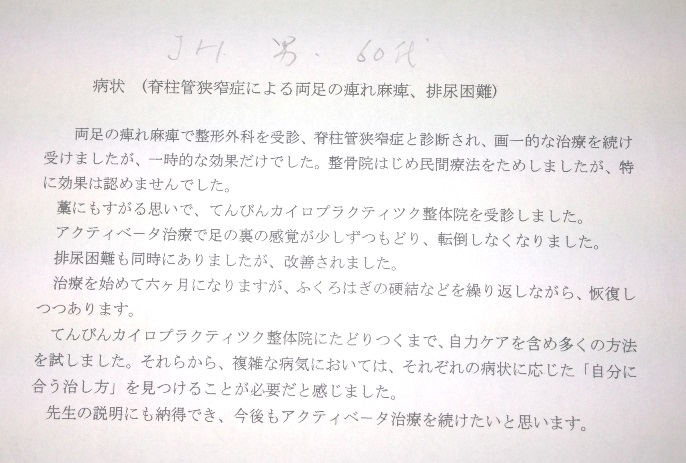 JH. 男. 60代
病状 (脊柱管狭窄症による両足の痺れ麻痺、排尿困難)
両足の痺れ麻痺で整形外科を受診、脊柱管狭窄症と診断され、画一的な治療を続け
受けましたが、一時的な効果だけでした。整骨院はじめ民間療法をためしましたが、特
に効果は認めませんでした。
藁にもすがる思いで、てんびんカイロプラクティツク整体院を受診しました。
アクティベータ治療で足の裏の感覚が少しずつもどり、転倒しなくなりました。
排尿困難も同時にありましたが、改善されました。
治療を始めて六ヶ月になりますが、ふくろはぎの硬結などを繰り返しながら、恢復し
つつあります。
てんびんカイロプラクティツク整体院にたどりつくまで、自力ケアを含め多くの方法
を試しました。それらから、複雑な病気においては、それぞれの病状に応じた「自分に
合う治し方」を見つけることが必要だと感じました。
先生の説明にも納得でき、今後もアクティベータ治療を続けたいと思います。